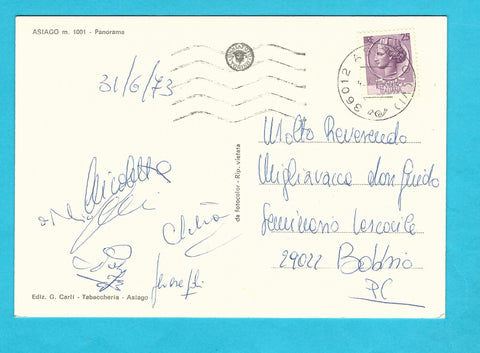 ASIAGO m. 1001 - Panorama
31/6/73
36012 A
25
Nicoletta
da fotocolor - Rip. vietata
Molto Reverendo
Migliavacca don Guido
Seminario Vescovile
29022 Bobbio
PC
Ediz. G. Carli - Tabaccheria - Asiago